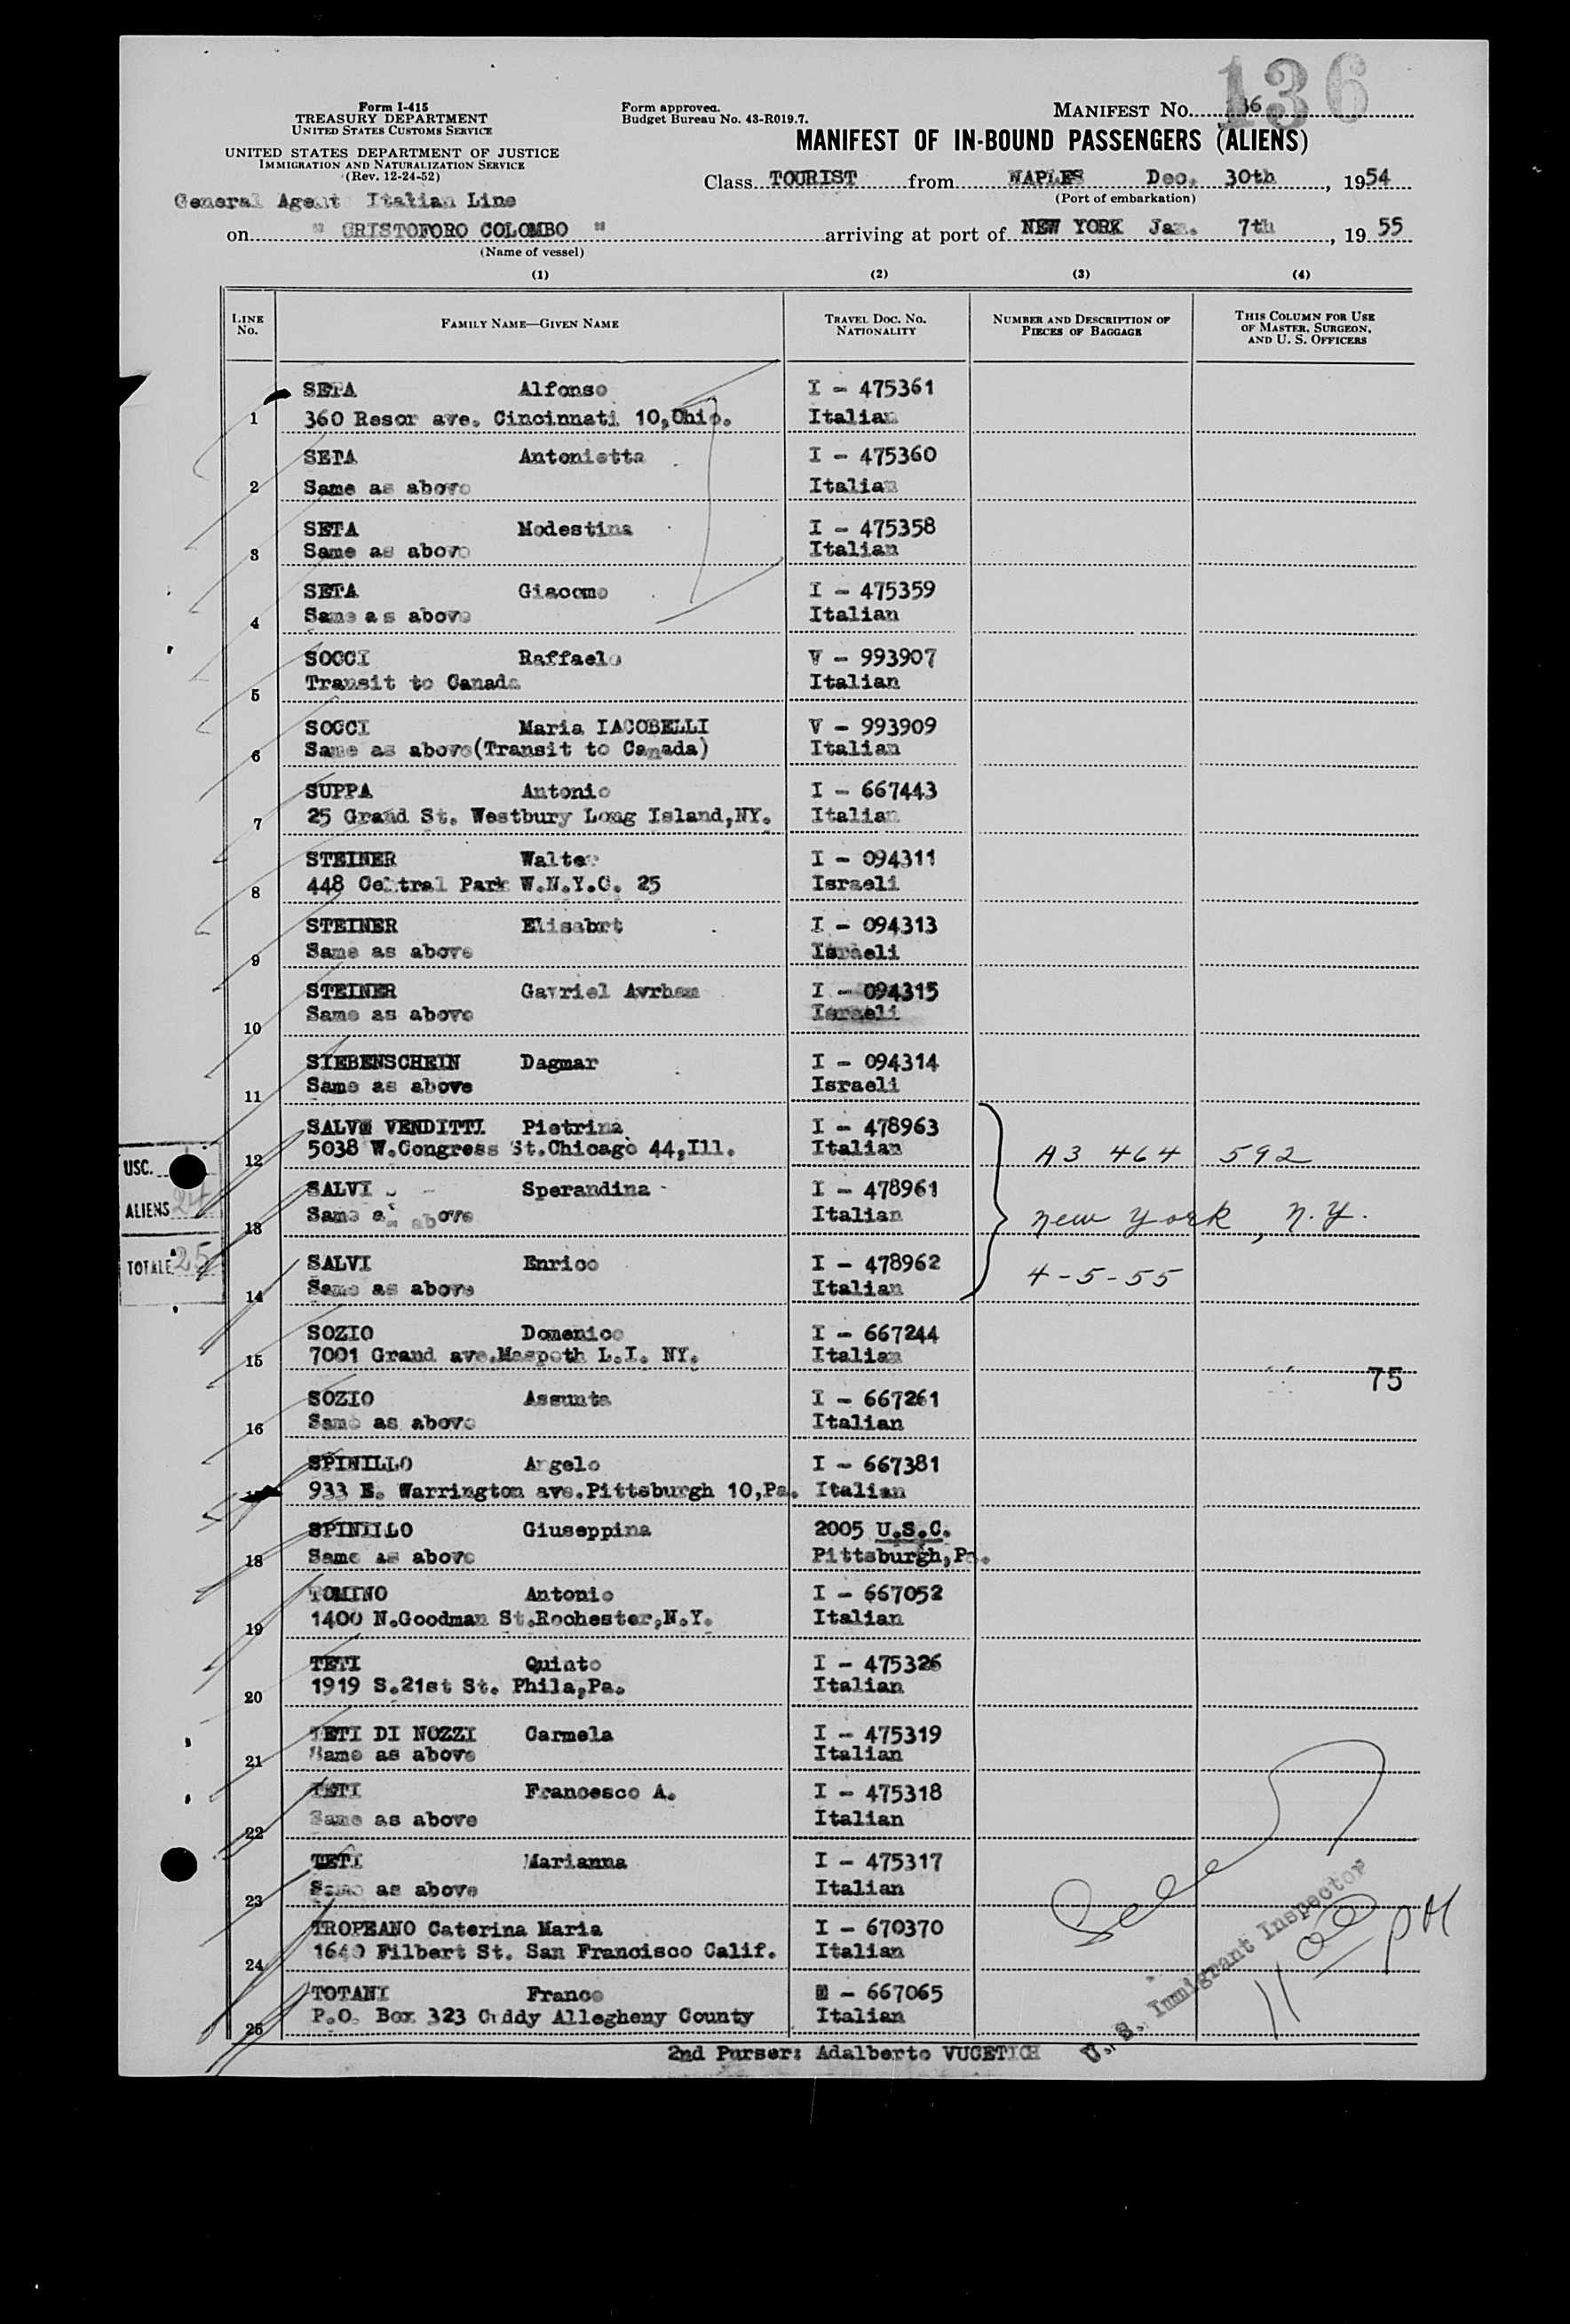 136
Form I-415
TREASURY DEPARTMENT
UNITED STATES CUSTOMS SERVICE
UNITED STATES DEPARTMENT OF JUSTICE
IMMIGRATION AND NATURALIZATION SERVICE
(Rev. 12-24-52)
Form approved.
Budget Bureau No. 43-R019.7.
MANIFEST No. 136
MANIFEST OF IN-BOUND PASSENGERS (ALIENS)
Class TOURIST from NAPLES Dec. 30th, 1954
(Port of embarkation)
General Agent Italian Line
on " CRISTOFORO COLOMBO " arriving at port of NEW YORK Jan. 7th, 19 55
(Name of vessel)
(1) (2) (3) (4)
LINE No. FAMILY NAME—GIVEN NAME TRAVEL DOC. NO. NATIONALITY NUMBER AND DESCRIPTION OF PIECES OF BAGGAGE THIS COLUMN FOR USE OF MASTER, SURGEON, AND U. S. OFFICERS
SETA Alfonso I - 475361
1 360 Resor ave. Cincinnati 10,Ohio. Italian
SETA Antonietta I - 475360
2 Same as above Italian
SETA Modestina I - 475358
3 Same as above Italian
SETA Giacomo I - 475359
4 Same as above Italian
SOCCI Raffaele V - 993907
5 Transit to Canada Italian
SOCCI Maria IACOBELLI V - 993909
6 Same as above(Transit to Canada) Italian
SUPPA Antonio I - 667443
7 25 Grand St. Westbury Long Island,NY. Italian
STEINER Walter I - 094311
8 448 Central Park W.N.Y.C. 25 Israeli
STEINER Elisabrt I - 094313
9 Same as above Israeli
STEINER Gavriel Avrham I - 094315
10 Same as above Israeli
SIEBENSCHEIN Dagmar I - 094314
11 Same as above Israeli
SALVI VENDITTI Pietrina I - 478963
12 5038 W.Congress St.Chicago 44,Ill. Italian A3 464 592
SALVI Sperandina I - 478961
13 Same as above Italian New York, N.Y.
SALVI Enrico I - 478962
14 Same as above Italian 4-5-55
USC.
ALIENS 24
TOTALE 25
SOZIO Domenico I - 667244
15 7001 Grand ave.Maspeth L.I. NY. Italian
75
SOZIO Assunta I - 667261
16 Same as above Italian
SPINILLO Angelo I - 667381
17 933 E. Warrington ave.Pittsburgh 10,Pa. Italian
SPINILLO Giuseppina 2005 U.S.C.
18 Same as above Pittsburgh,Pa.
TOMINO Antonio I - 667052
19 1400 N.Goodman St.Rochester,N.Y. Italian
TETI Quinto I - 475326
20 1919 S.21st St. Phila,Pa. Italian
TETI DI NOZZI Carmela I - 475319
21 Same as above Italian
TETI Francesco A. I - 475318
22 Same as above Italian
TETI Marianna I - 475317
23 Same as above Italian
TROPEANO Caterina Maria I - 670370
24 1640 Filbert St. San Francisco Calif. Italian
TOTANI Franco - 667065
25 P.O. Box 323 Cuddy Allegheny County Italian
U. S. Immigrant Inspector
1100 PM
2nd Purser: Adalberto VUCETICH